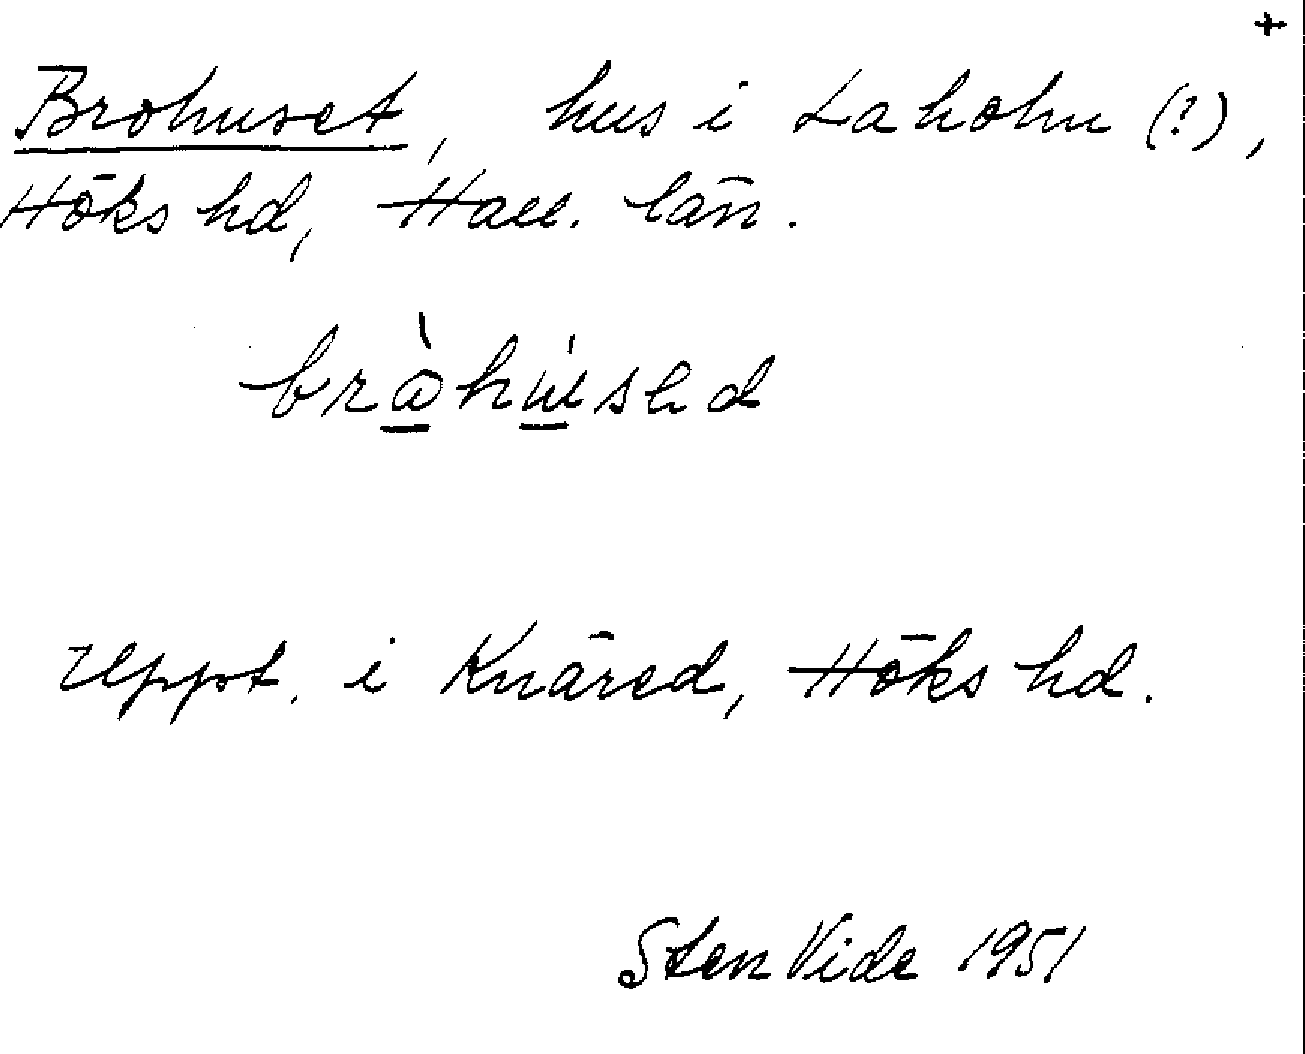 +
Brohuset, hus i Laholm (?),
Höks hd, Hall. län.
Uppt. i Knäred, Höks hd.
Sten Vide 1951